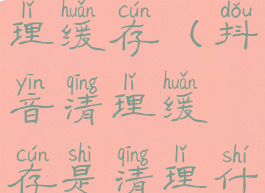 lǐ huǎn cún dǒu
理缓存(抖
yīn qīng lǐ huǎn
音清理缓
cún shì qīng lǐ shí
存是清理什